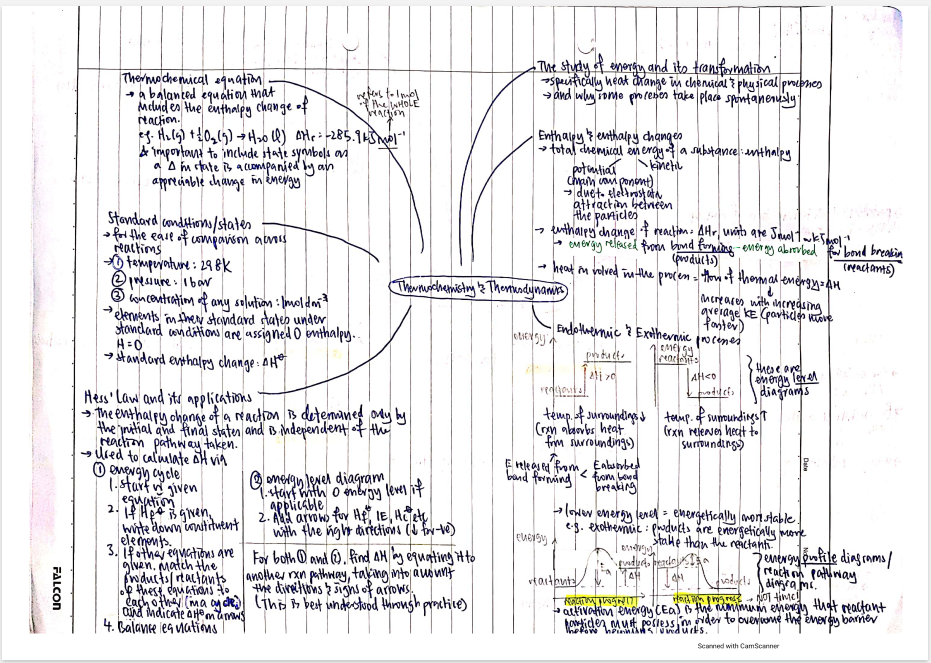 Thermochemical equation
→ a balanced equation that
includes the enthalpy change of
reaction.
refers to 1 mol
of the WHOLE
reaction
e.g. H₂(g) + ½O₂(g) → H₂O (l) ΔHr = -285.9 kJ mol⁻¹
important to include state symbols as
a Δ in state is accompanied by an
appreciable change in energy
Standard conditions/states
→ for the ease of comparison across
reactions
→ ① temperature: 298K
② pressure: 1 bar
③ concentration of any solution: 1 mol dm⁻³
→ elements in their standard states under
standard conditions are assigned 0 enthalpy.
H = 0
→ standard enthalpy change: ΔH⦵
Hess' Law and its applications
→ The enthalpy change of a reaction is determined only by
the initial and final states and is independent of the
reaction pathway taken.
→ Used to calculate ΔH via
① energy cycle
1. start w given
equation
2. If Hf⦵ is given,
write down constituent
elements.
3. If other equations are
given, match the
products/reactants
of these equations to
each other (in a cycle)
and indicate ΔH on arrows
4. Balance equations
② energy level diagram
1. start with 0 energy level if
applicable
2. Add arrows for Hf⦵, IE, Hc⦵ etc
with the right directions (↓ for -ve)
For both ① and ②, find ΔH by equating it to
another rxn pathway, taking into account
the directions & signs of arrows.
(This is best understood through practice)
Thermochemistry & Thermodynamics
The study of energy and its transformation
→ specifically heat change in chemical & physical processes
→ and why some processes take place spontaneously
Enthalpy & enthalpy changes
→ total chemical energy of a substance: enthalpy
potential
kinetic
(main component)
→ due to electrostatic
attraction between
the particles
→ enthalpy change of reaction: ΔHr, units are Jmol⁻¹ or kJmol⁻¹
→ energy released from bond forming - energy absorbed for bond breakin
(products)
(reactants)
→ heat involved in the process = flow of thermal energy = ΔH
increases with increasing
average KE (particles move
faster)
Endothermic & Exothermic
processes
energy
products
ΔH>0
reactants
energy
reactants
ΔH<0
products
these are
energy level
diagrams
temp. of surroundings ↓
(rxn absorbs heat
from surroundings)
temp. of surroundings ↑
(rxn releases heat to
surroundings)
E released from
bond forming
<
E absorbed
from bond
breaking
→ lower energy level = energetically more stable
e.g. exothermic: products are energetically more
stable than the reactants.
energy
reactants
Ea
products
ΔH
reaction progress
energy
reactants
Ea
ΔH
products
reaction progress → NOT time!
energy profile diagrams/
reaction pathway
diagrams.
→ activation energy (Ea) is the minimum energy that reactant
particles must possess in order to overcome the energy barrier
before becoming products.
FALCON
Date
Scanned with CamScanner